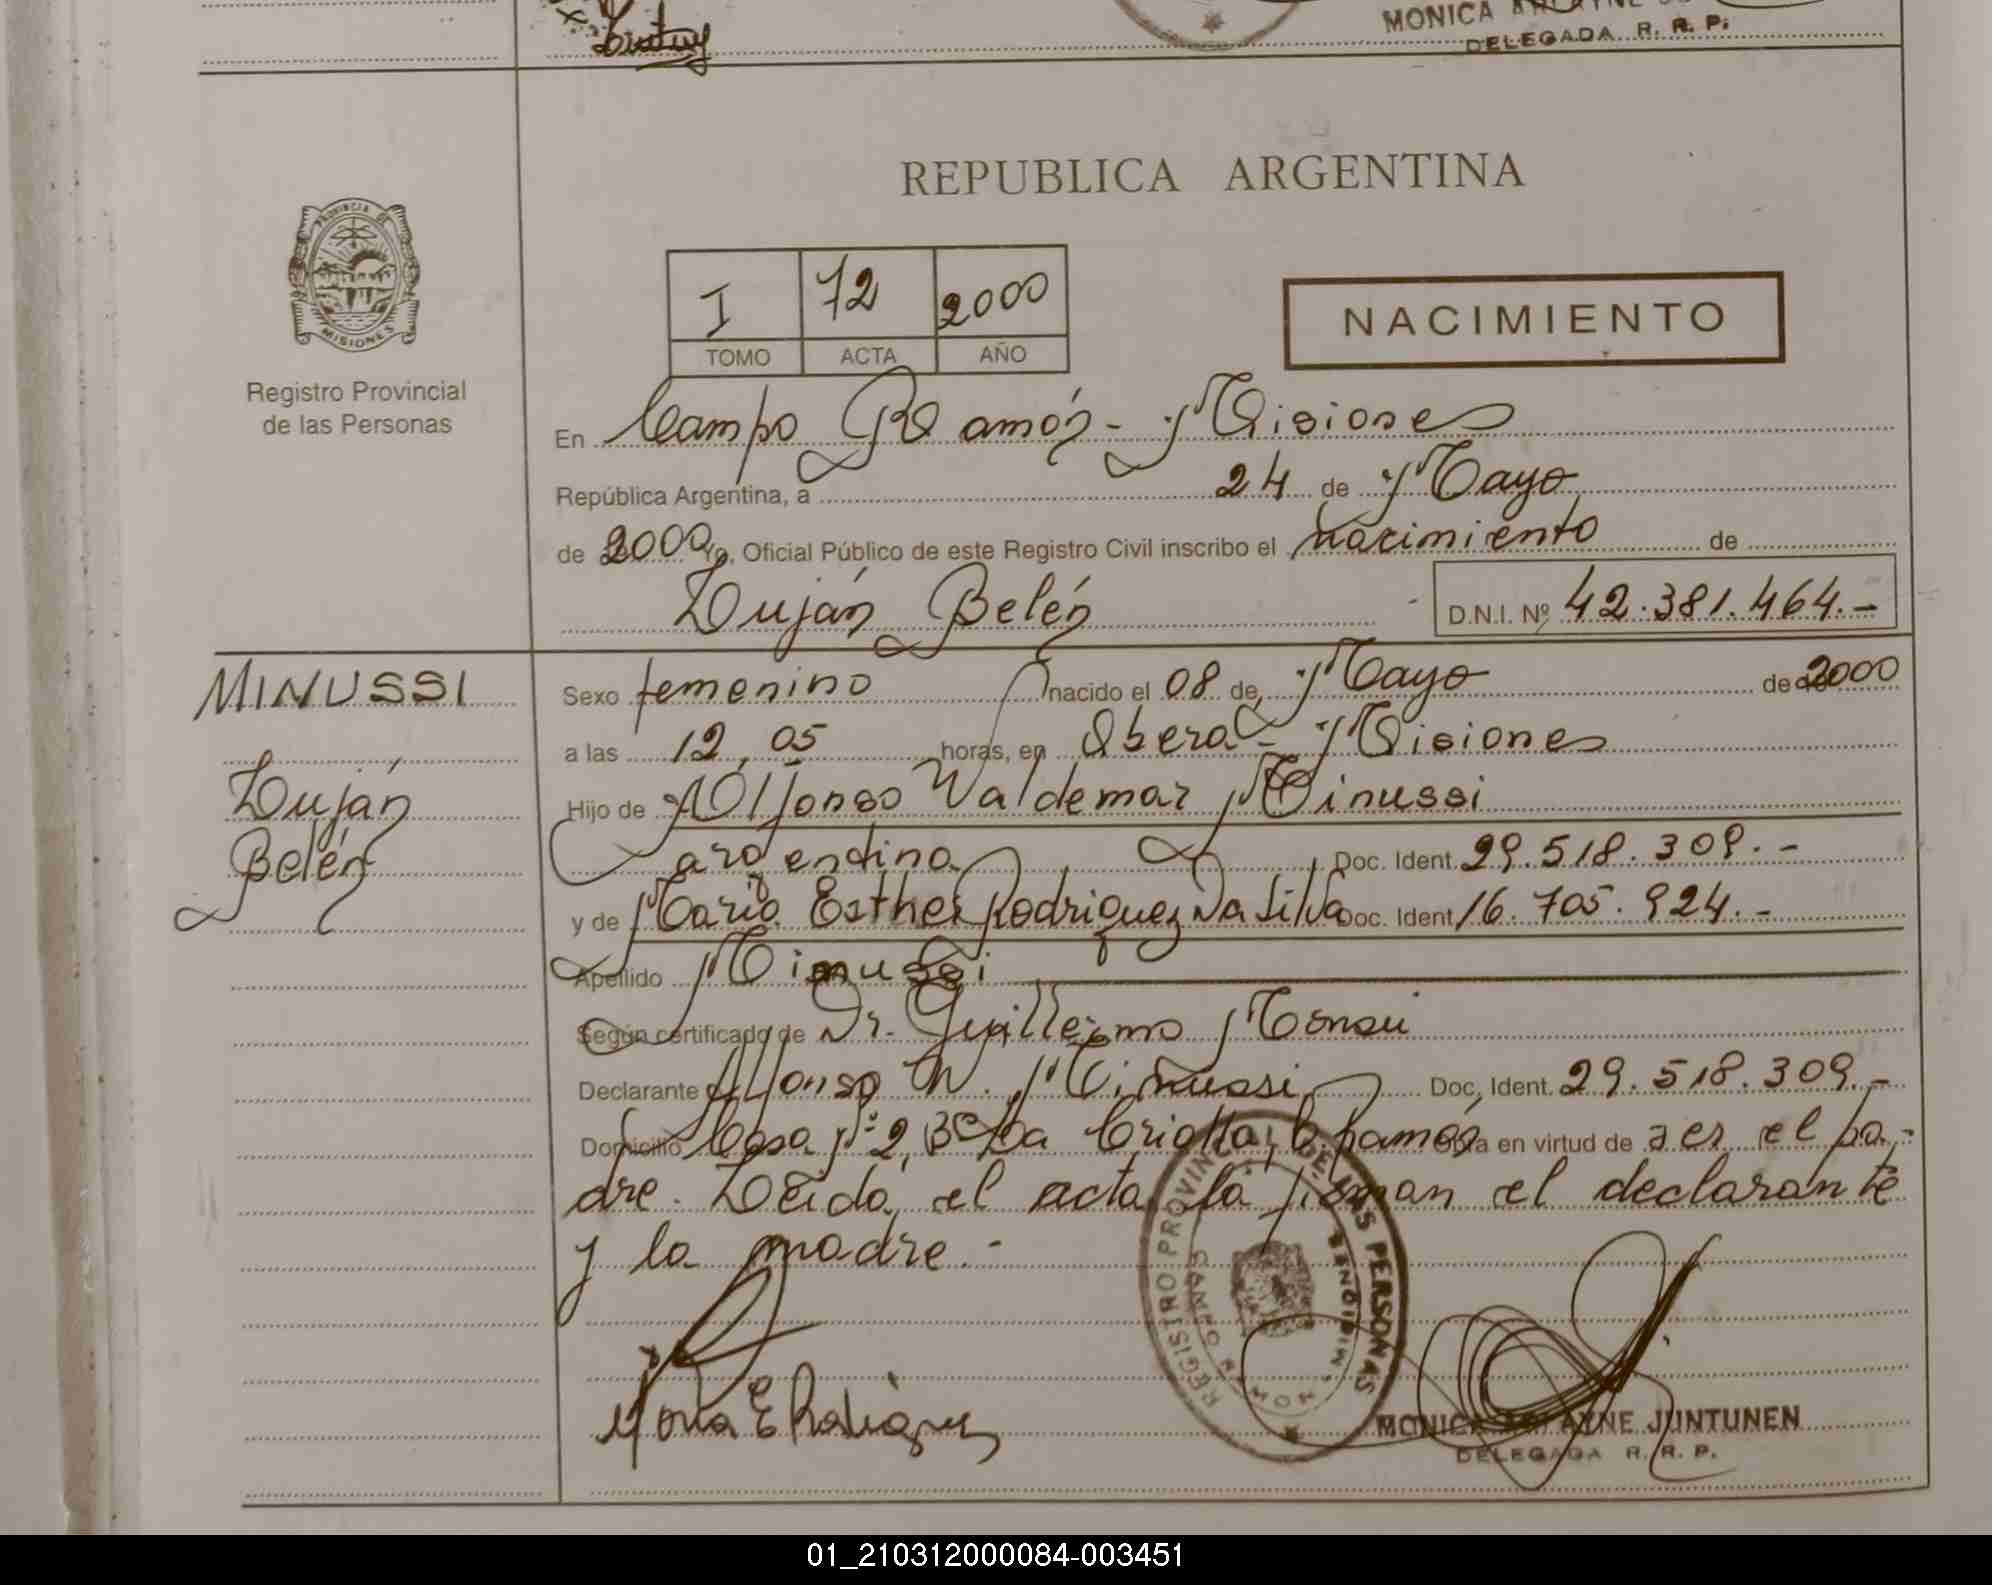 MONICA
DELEGADA R. R. P.
REPUBLICA ARGENTINA
PROVINCIA DE
MISIONES
Registro Provincial
de las Personas
I 72 2000
TOMO ACTA AÑO
NACIMIENTO
En Campo Ramón - Misiones
República Argentina, a 24 de Mayo
de 2000 Yo, Oficial Público de este Registro Civil inscribo el nacimiento de
Luján Belén D.N.I. Nº 42.381.464.-
MINUSSI
Luján
Belén
Sexo femenino nacido el 08 de Mayo de 2000
a las 12,05 horas, en Oberá - Misiones
Hijo de Alfonso Valdemar Minussi
argentino Doc. Ident. 29.518.309.-
y de María Esther Rodriguez Da Silva Doc. Ident. 16.705.924.-
Apellido Minussi
Según certificado de Dr. Guillermo
Declarante Alfonso W. Minussi Doc, Ident. 29.518.309.-
Domicilio Casa Nº 2, Bº La Criolla, C. Ramón Obra en virtud de ser el pa-
dre. Leida el acta la firman el declarante
y la madre.-
REGISTRO PROVINCIAL DE LAS PERSONAS
CAMPO RAMON
MISIONES
Maria E Rodriguez
MONICA JUNTUNEN
DELEGADA R. R. P.
01_210312000084-003451